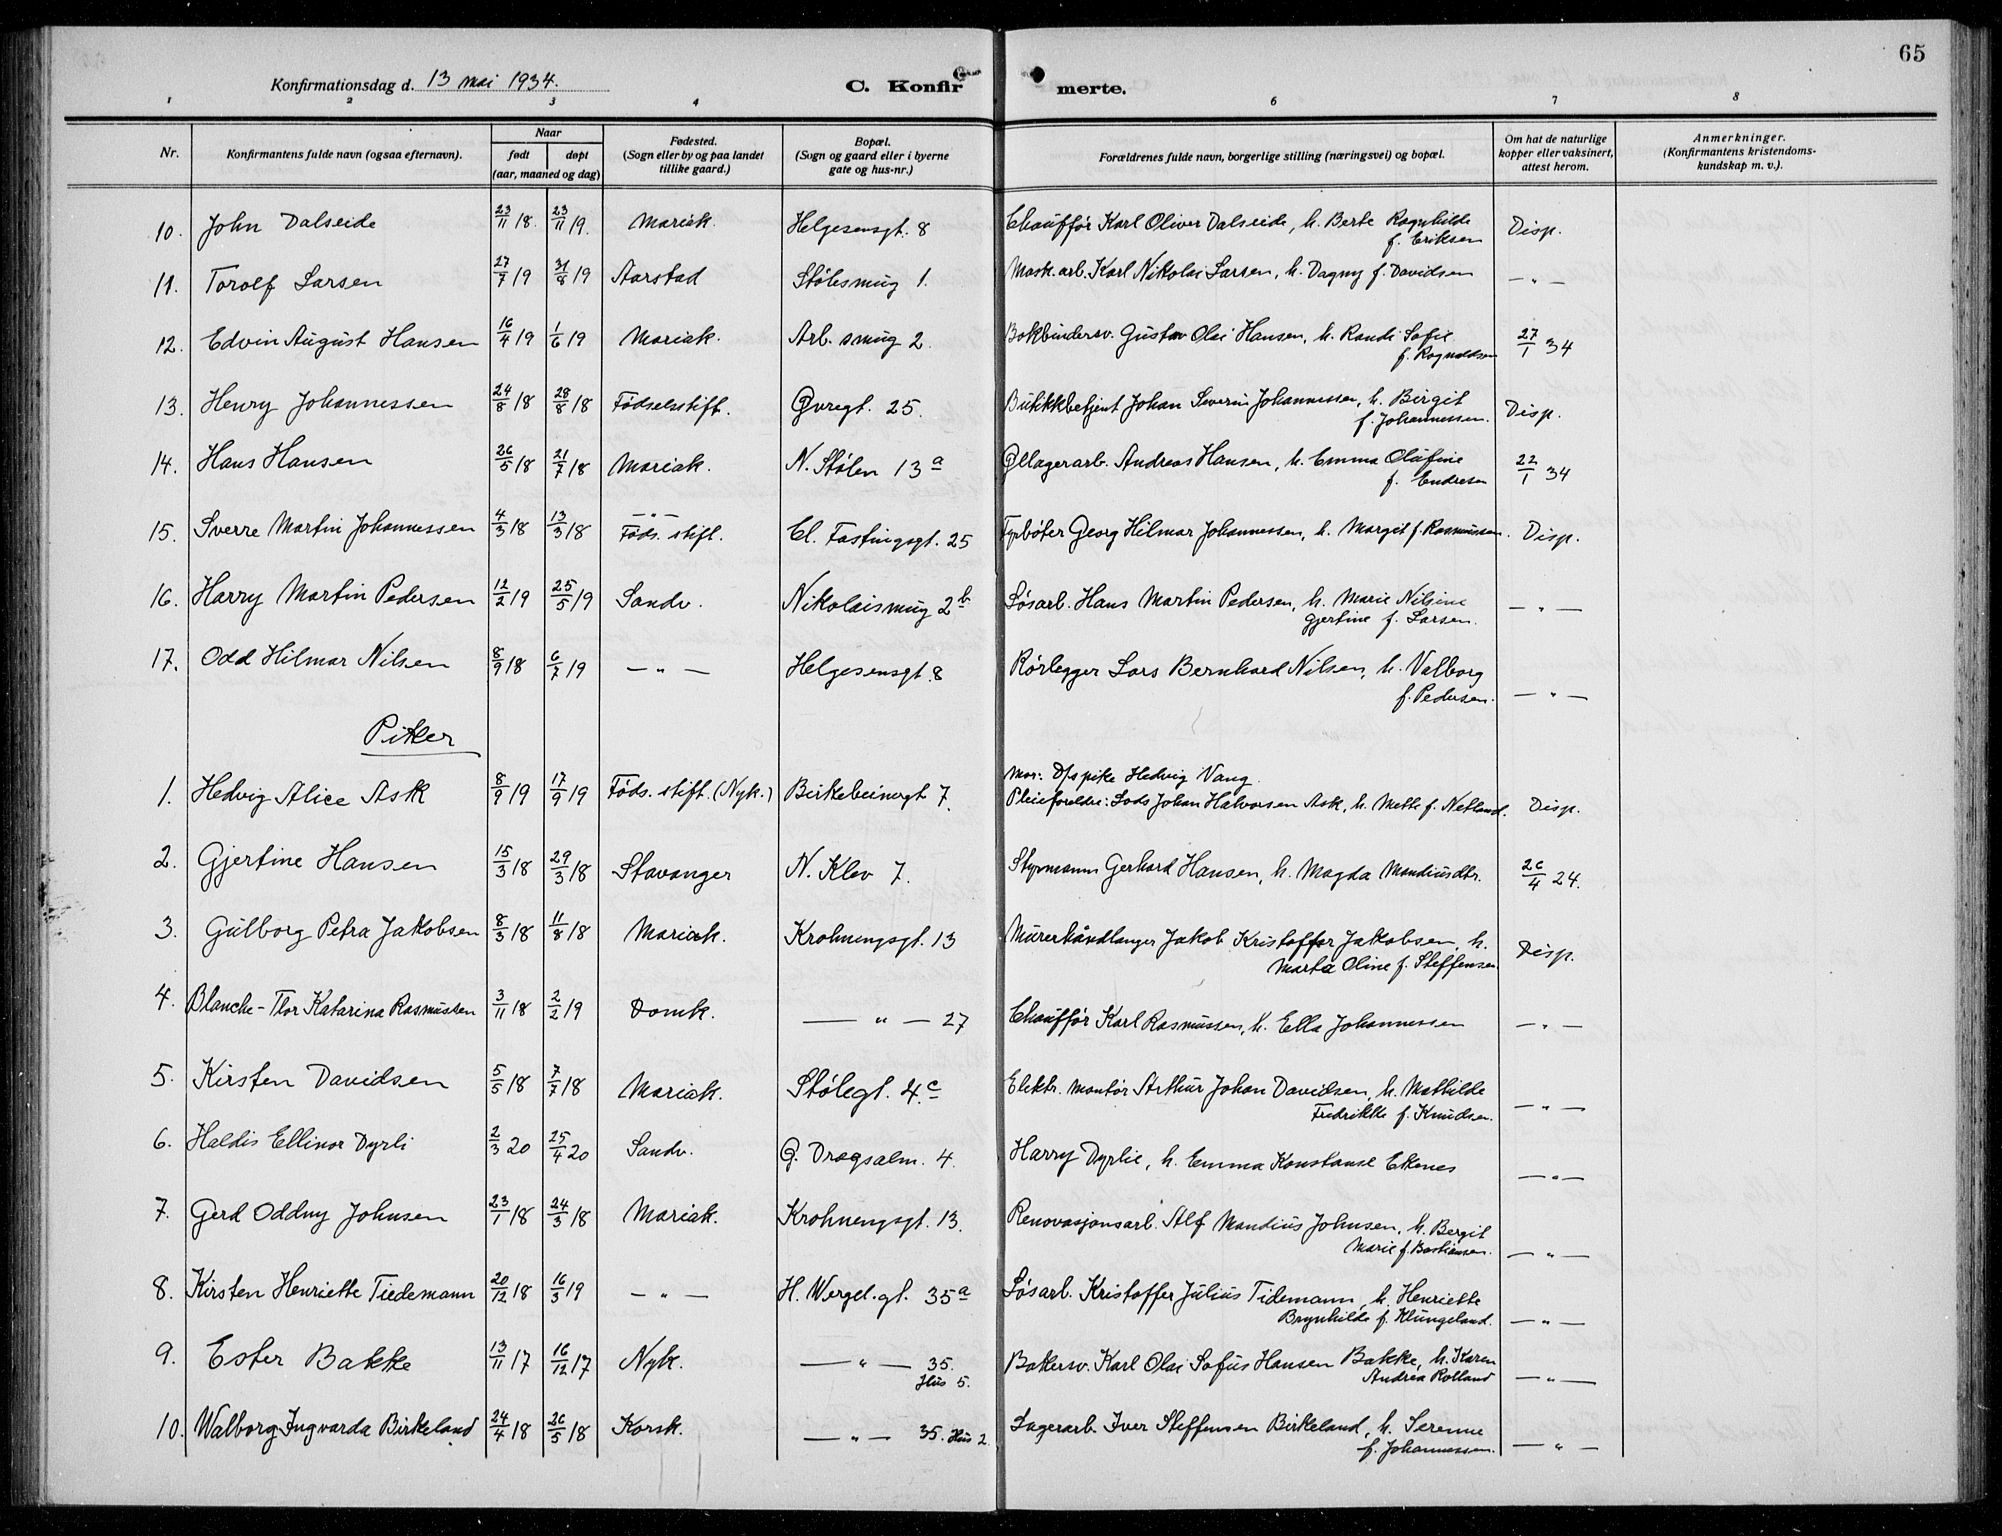 65
Konfirmationsdag d. 13 mai 1934.
C. Konfirmerte.
1 2 3 4 6 7 8
Nr. Konfirmantens fulde navn (ogsaa efternavn). Naar født døpt (aar, maaned og dag) Fødested. (Sogn eller by og paa landet tillike gaard.) Bopæl. (Sogn og gaard eller i byerne gate og hus-nr.) Forældrenes fulde navn, borgerlige stilling (næringsvei) og bopæl. Om hat de naturlige kopper eller vaksinert, attest herom. Anmerkninger. (Konfirmantens kristendoms-kundskap m. v.).
10. John Dalseide 23/11 18. 23/11 19. Mariak. Helgesensgt. 8 Chauffør Karl Oliver Dalseide, h. Berte Ragnhilde Disp.
f. Eriksen
11. Torolf Larsen 27/7 19 31/8 19 Aarstad Stølesmug 1. Mask.arb. Karl Nikolai Larsen, h. Dagny f. Davidsen — " —
12. Edvin August Hansen 16/4 19 1/6 19 Mariak. Arb. smug 2. Bokbindersv. Gustav Olai Hansen, h. Randi Sofie 27/1 34
f. Rognaldsen
13. Henry Johannessen 24/8 18 28/8 18 Fødselsstift. Øvregt. 25. Butikkbetjent Johan Severin Johannessen, h. Birgit Disp.
f. Johannessen.
14. Hans Hansen 26/5 18 21/7 18 Mariak. N. Stølen 13a Øllagerarb. Andreas Hansen, h. Emma Olufine 22/1 34
f. Endresen
15. Sverre Martin Johannessen 4/3 18 13/3 18 — " — Føds. stift. Cl. Fastingsgt. 25 Fyrbøter Georg Hilmar Johannessen, h. Margit f. Rasmussen. Disp.
16. Harry Martin Pedersen 12/2 19 25/5 19 Sandv. Nikolaismug 2b Løsarb. Hans Martin Pedersen, h. Marie Nilsine — " —
Gjertine f. Larsen.
17. Odd Hilmar Nilsen 8/9 18 6/7 19 — " — Helgesensgt. 8 Rørlegger Lars Bernhard Nilsen, h. Valborg
f. Pedersen. — " —
Piker
Mor: D/spike Hedvig Vang.
1. Hedvig Alice Ask 8/9 19 17/9 19 Føds. stift. (Nyk.) Birkebeinergt 7. Pleieforeldre: Lods Johan Halvorsen Ask, h. Mette f. Netland. Disp.
2. Gjertine Hansen 15/3 18 29/3 18 Stavanger N. Klev 7. Styrmann Gerhard Hansen, h. Magda Mandiusdtr. 26/4 24.
3. Gulborg Petra Jakobsen 8/3 18 11/8 18 Mariak. Krohnengsgt. 13 Murerhåndlanger Jakob Kristoffer Jakobsen, h. Disp.
Marta Oline f. Steffensen
4. Blanche-Flor Katarina Rasmussen 3/11 18 2/2 19 Domk. — " — 27 Chauffør Karl Rasmussen, h. Ella Johannessen — " —
5. Kirsten Davidsen 5/5 18 7/7 18 Mariak. Stølegt. 4.c Elektr. montør Arthur Johan Davidsen, h. Mathilde — " —
Fredrikke f. Knudsen.
6. Haldis Ellinor Dyrli 2/3 20 25/4 20 Sandv. Ø. Dregsalm. 4. Harry Dyrlie, h. Emma Konstanse Ekenes — " —
7. Gerd Oddny Johnsen 23/1 18 24/3 18 Mariak. Krohnengsgt. 13. Renovasjonsarb. Alf Mandius Johnsen, h. Bergit
Marie f. Bastiansen. — " —
8. Kirsten Henriette Tiedemann 20/12 18 16/3 19 — " — H. Wergel. gt. 35a Løsarb. Kristoffer Julius Tidemann, h. Henriette
Brynhilde f. Klungeland. — " —
9. Ester Bakke 13/11 17 16/12 17 Nyk. — " — 35. Bakersv. Karl Olai Sofus Hansen Bakke, h. Karen
Hus 5. Andrea Rolland — " —
10. Walborg Ingvarda Birkeland 24/4 18 26/5 18 Korsk. — " — 35. Hus 2 Lagerarb. Iver Steffensen Birkeland, h. Serenne
f. Johannessen. — " —